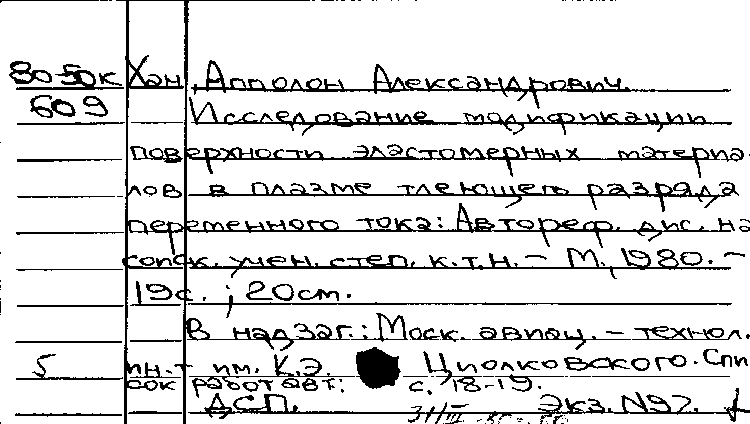 80-50к Хан, Апполон Александрович.
609 Исследование модификации
поверхности эластомерных материа-
лов в плазме тлеющего разряда
переменного тока: Автореф. дис. на
соиск. учен. степ. к.т.н. - М., 1980. -
19с. ; 20см.
В надзаг.: Моск. авиац. - технол.
5 ин-т им. К.Э. Циолковского. Спи
сок работ авт: с. 18-19.
ДСП. Экз. N97.
31/III